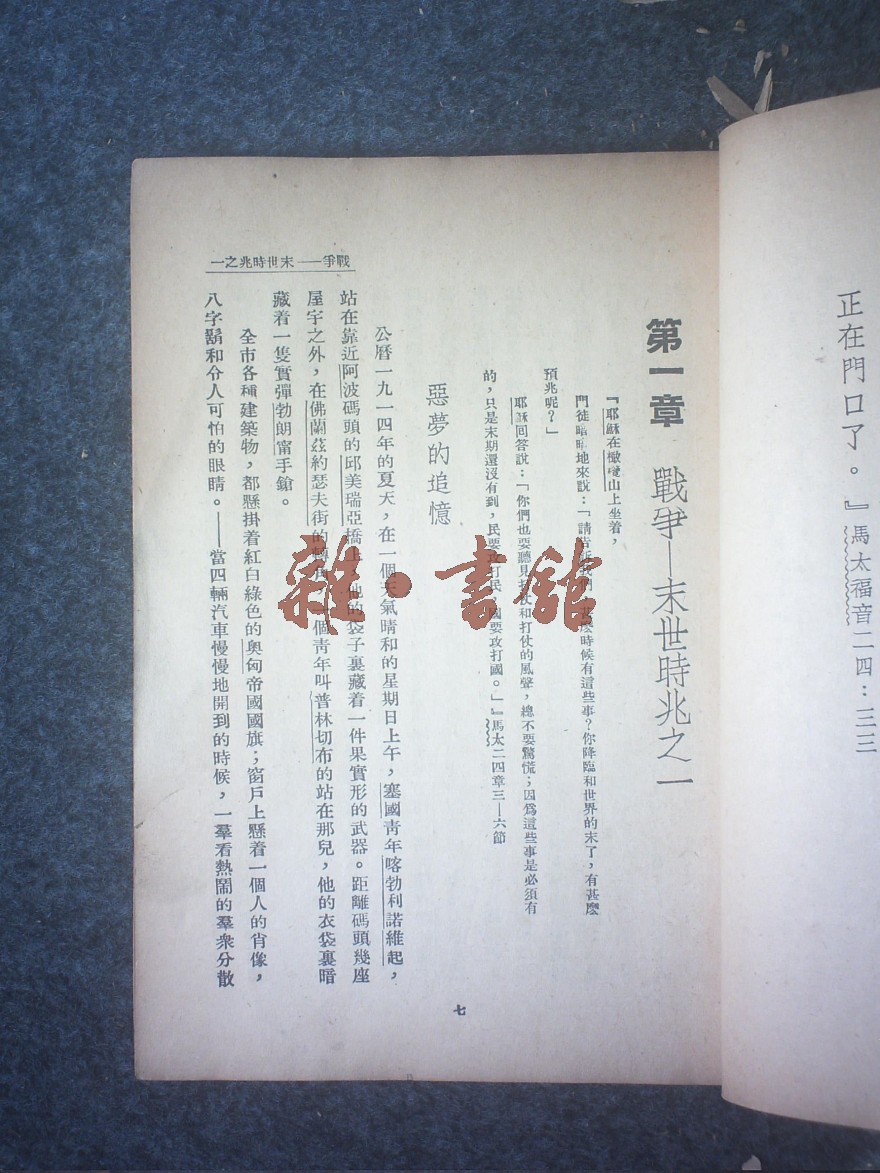 正在門口了。』馬太福音二四：三三
第一章 戰爭—末世時兆之一
『耶穌在橄欖山上坐着，
門徒暗暗地來說：「請告訴我們，甚麼時候有這些事？你降臨和世界的末了，有甚麼
預兆呢？」
耶穌回答說：「你們也要聽見打仗和打仗的風聲，總不要驚慌；因爲這些事是必須有
的，只是末期還沒有到，民要攻打民，國要攻打國。」』馬太二四章三—六節
惡夢的追憶
公曆一九一四年的夏天，在一個天氣晴和的星期日上午，塞國青年喀勃利諾維起，
站在靠近阿波碼頭的邱美瑞亞橋上，他的袋子裏藏着一件果實形的武器。距離碼頭幾座
屋宇之外，在佛蘭茲約瑟夫街的轉角，個青年叫普林切布的站在那兒，他的衣袋裏暗
藏着一隻實彈勃朗甯手鎗。
全市各種建築物，都懸掛着紅白綠色的奧匈帝國國旗；窗戶上懸着一個人的肖像，
八字鬍和令人可怕的眼睛。——當四輛汽車慢慢地開到的時候，一羣看熱鬧的羣衆分散
戰爭——末世時兆之一
七
雜·書館